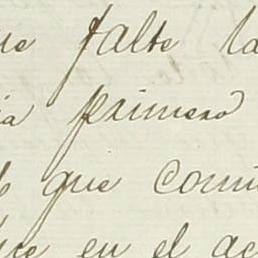 ue falte la
ia primero
que comu
que en el ac